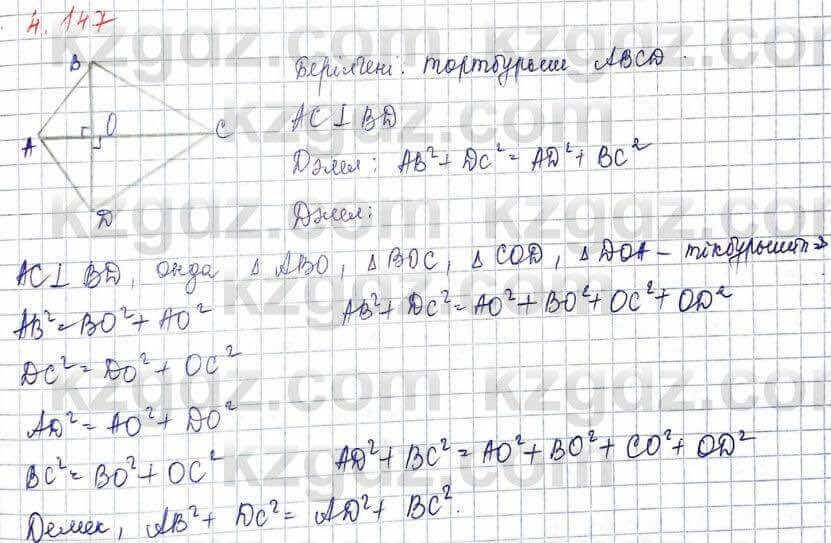 4.147
B
Берілгені: төртбұрыш ABCD.
O
C
AC⊥BD
A
Дәлел: AB²+DC²=AD²+BC²
D
Дәлел:
AC⊥BD, онда △ABO, △BOC, △COD, △DOA – тікбұрышты
AB²=BO²+AO²
AB²+DC²=AO²+BO²+OC²+OD²
DC²=DO²+OC²
AD²=AO²+DO²
BC²=BO²+OC²
AD²+BC²=AO²+BO²+CO²+OD²
Демек, AB²+DC²=AD²+BC².
kzgdz.com